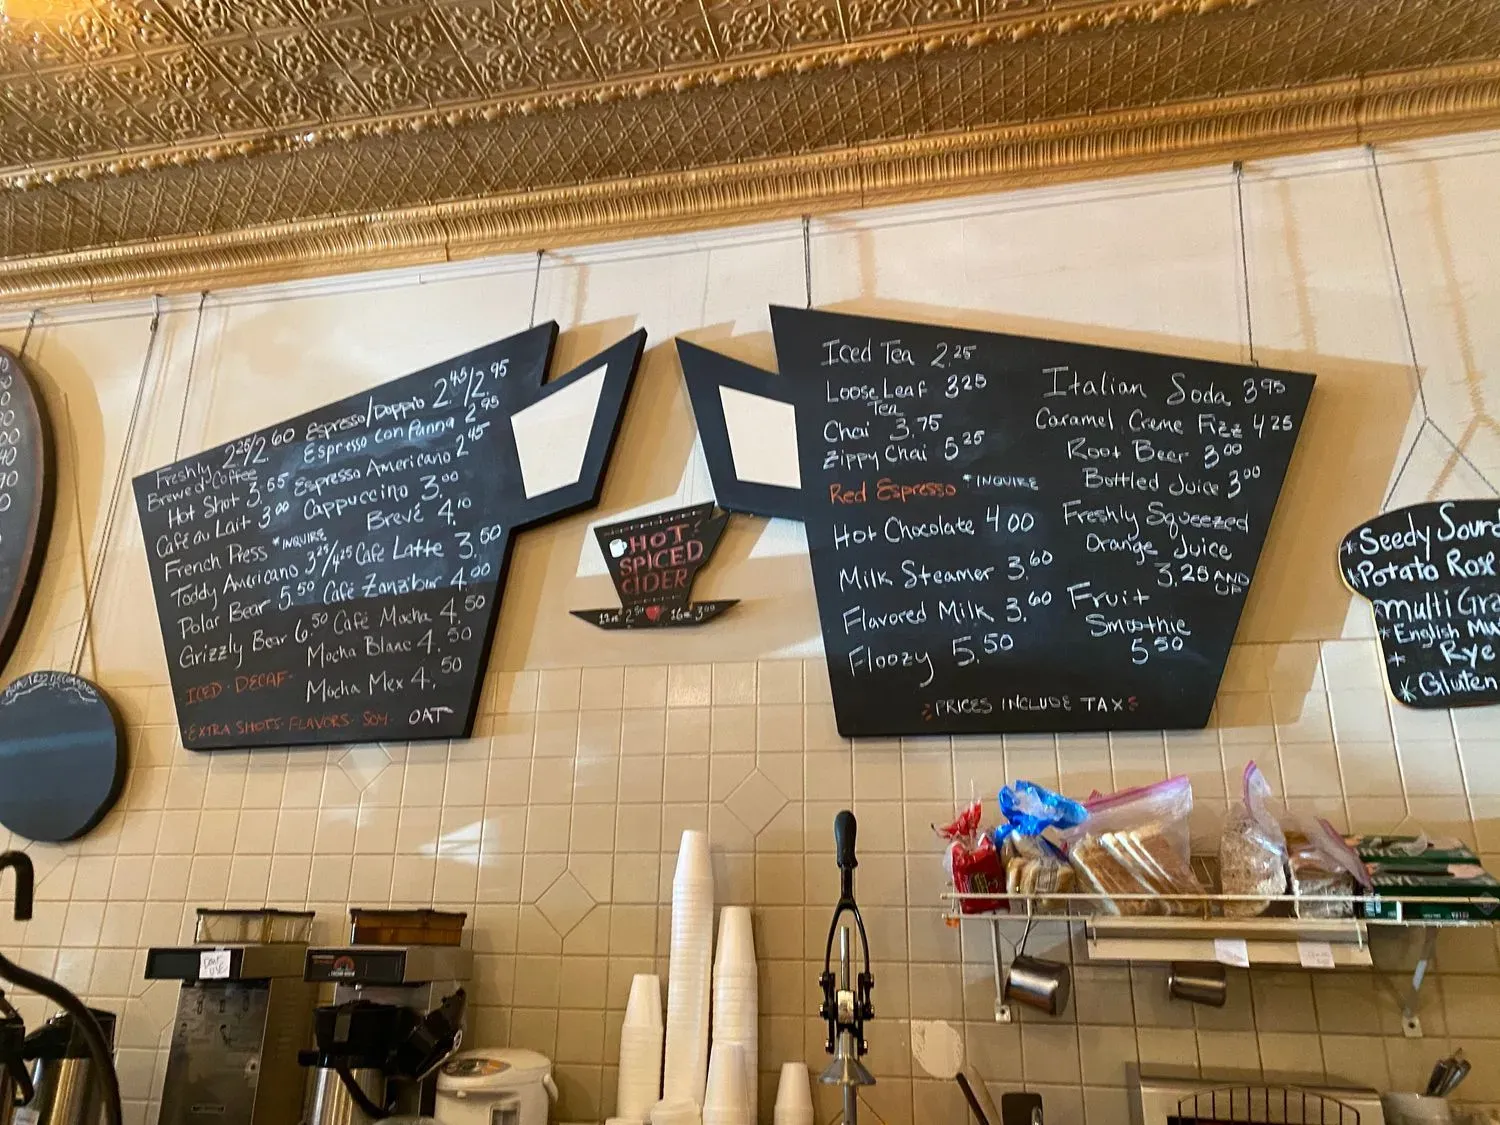 Freshly 2.25/2.60
Brewed Coffee
Hot Shot 3.55
Café au Lait 3.00
French Press *INQUIRE
Toddy Americano 3.25/4.25
Polar Bear 5.50
Grizzly Bear 6.50
ICED · DECAF
Espresso/Doppio 2.45/2.95
Espresso Con Panna 2.95
Espresso Americano 2.45
Cappuccino 3.00
Brevé 4.10
Café Latte 3.50
Café Zanzibar 4.00
Café Mocha 4.50
Mocha Blanc 4.50
Mocha Mex 4.50
EXTRA SHOTS · FLAVORS · SOY · OAT
HOT
SPICED
CIDER
12oz 2.50 16oz 3.00
Iced Tea 2.25
Loose Leaf 3.25
Tea
Chai 3.75
Zippy Chai 5.25
Red Espresso *INQUIRE
Hot Chocolate 4.00
Milk Steamer 3.60
Flavored Milk 3.60
Floozy 5.50
Italian Soda 3.95
Caramel Creme Fizz 4.25
Root Beer 3.00
Bottled Juice 3.00
Freshly Squeezed
Orange Juice
3.25 AND UP
Fruit
Smoothie
5.50
PRICES INCLUDE TAX
*Seedy Sourd
*Potato Rose
Multi Gra
*English Mu
* Rye
*Gluten